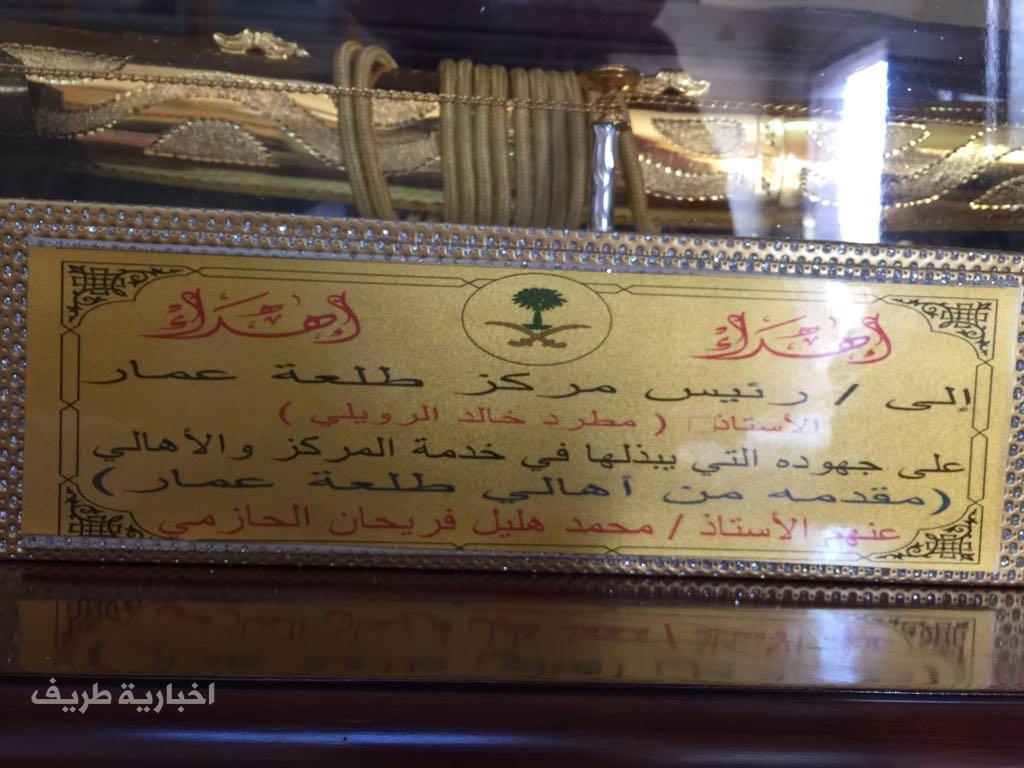 إهداء إهداء
إلى / رئيس مركز طلعة عمار
الأستاذ ( مطرد خالد الرويلي )
على جهوده التي يبذلها في خدمة المركز والأهالي
(مقدمه من أهالي طلعة عمار)
عنهم الأستاذ / محمد هليل فريحان الحازمي
اخبارية طريف